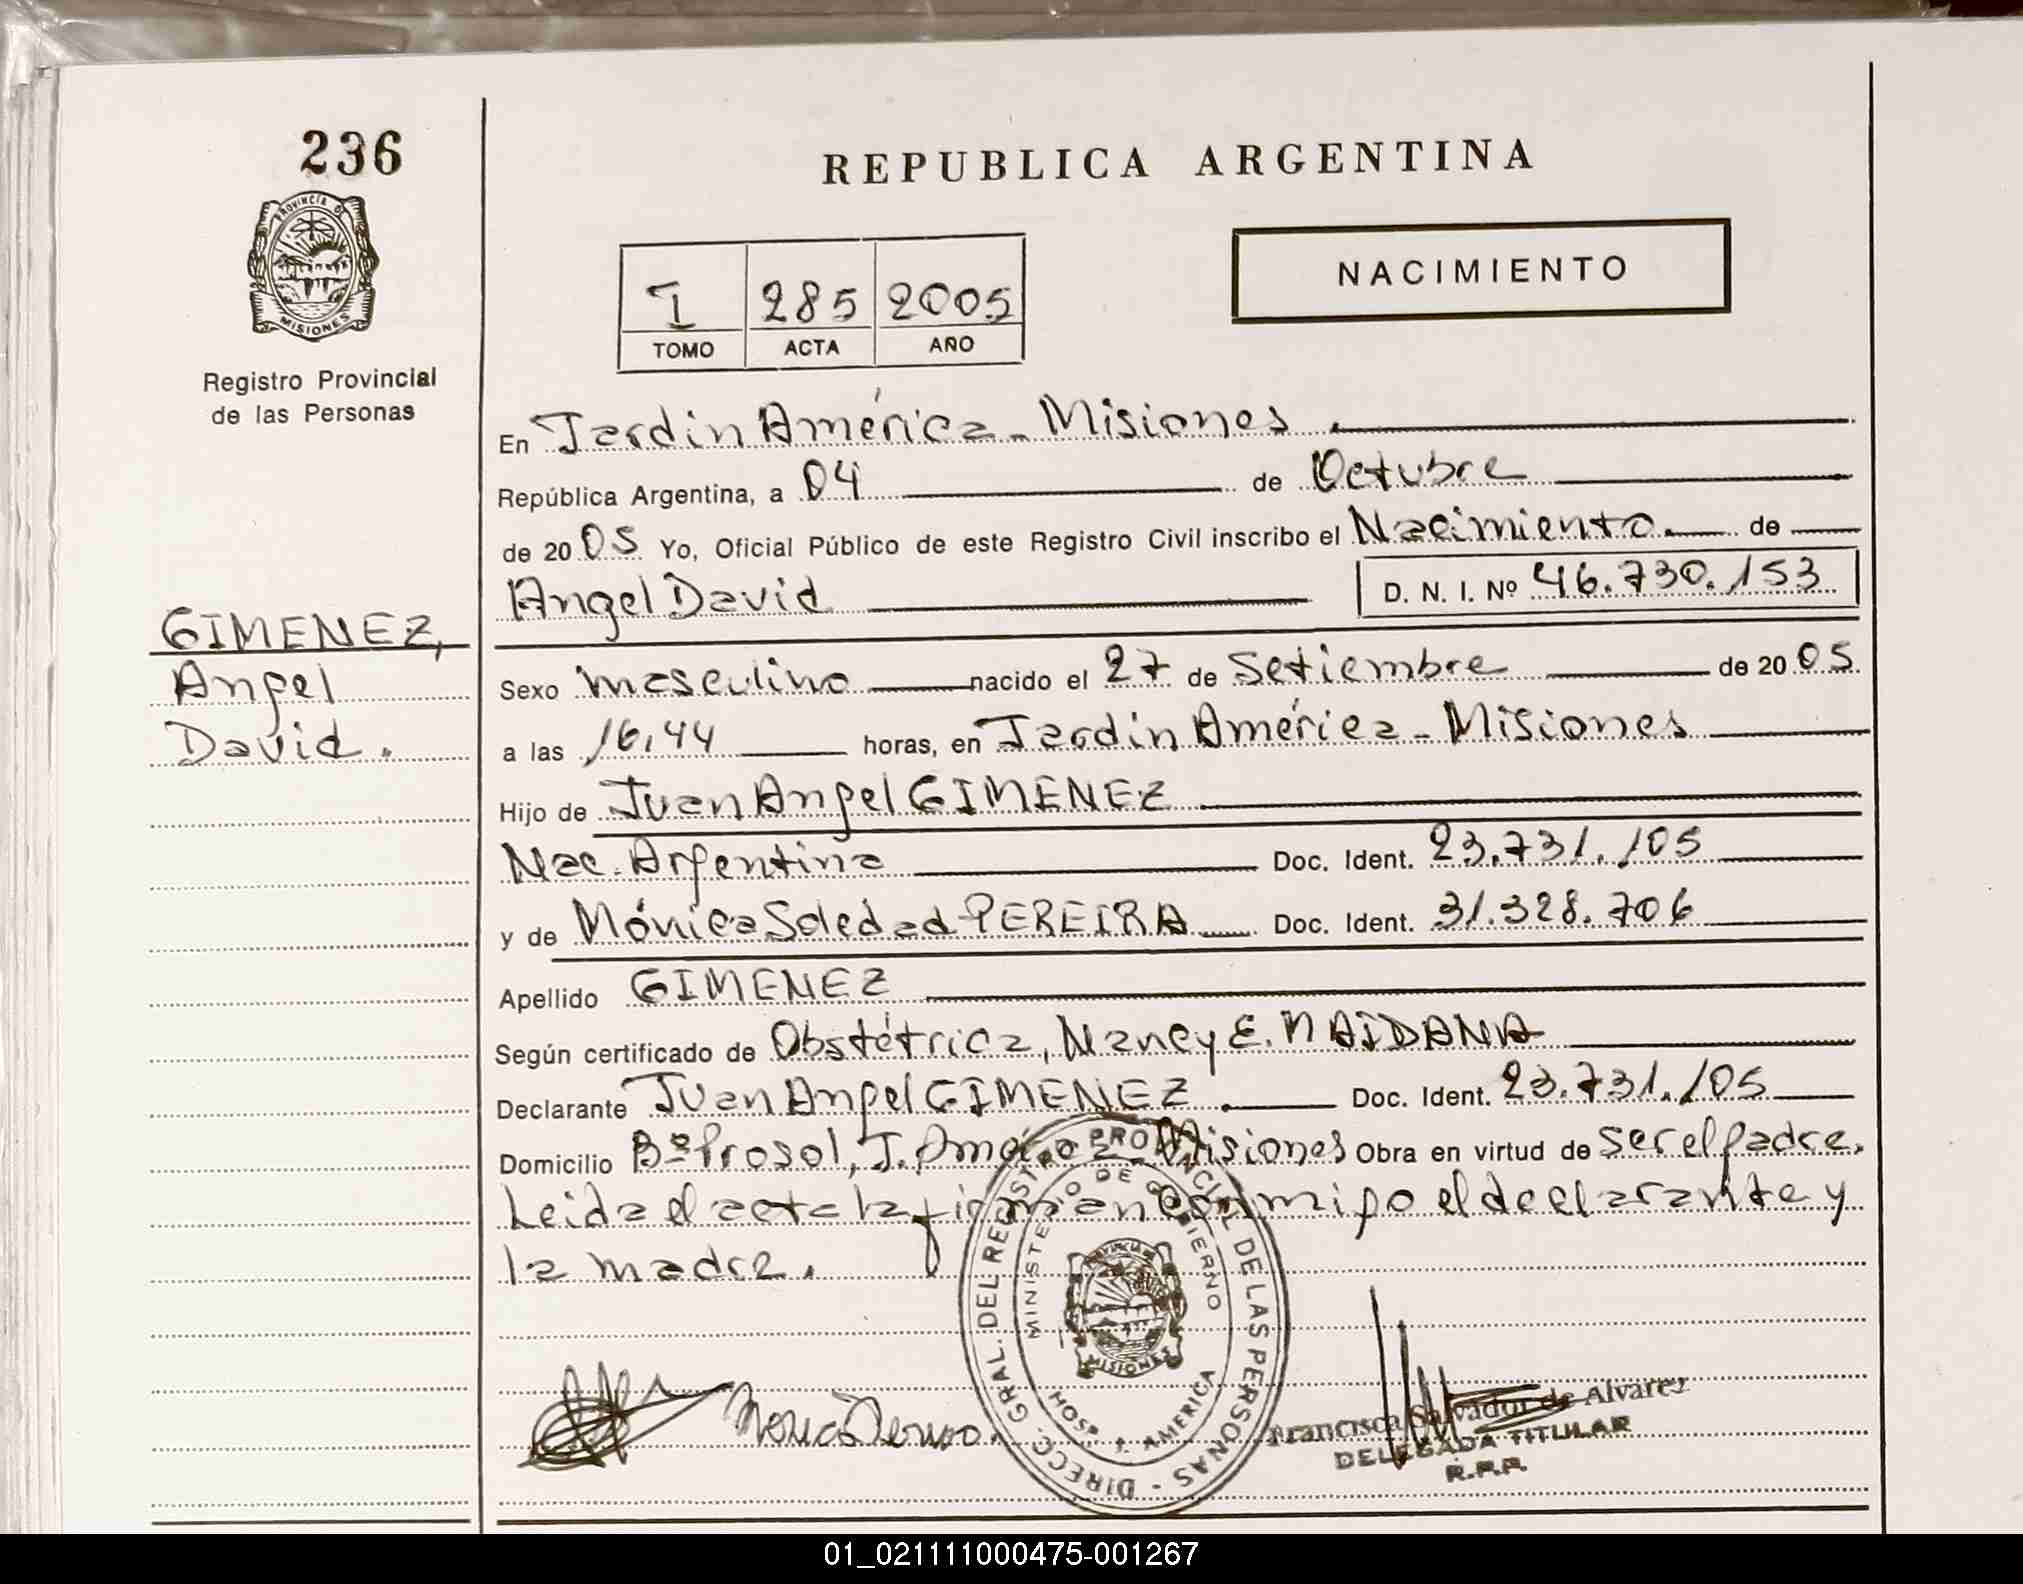 236
PROVINCIA DE
MISIONES
Registro Provincial
de las Personas
GIMENEZ,
Angel
David.
REPUBLICA ARGENTINA
NACIMIENTO
I 285 2005
TOMO ACTA AÑO
En Jardín América - Misiones
República Argentina, a 04 de Octubre
de 2005 Yo, Oficial Público de este Registro Civil inscribo el Nacimiento de
Angel David D. N. I. Nº 46.730.153
Sexo masculino nacido el 27 de Setiembre de 2005.
a las 16,44 horas, en Jardín América - Misiones
Hijo de Juan Angel GIMENEZ
Nac. Argentina Doc. Ident. 23.731.105
y de Mónica Soledad PEREIRA Doc. Ident. 31.328.706
Apellido GIMENEZ
Según certificado de Obstétrica, Nancy E. MAIDANA
Declarante Juan Angel GIMENEZ Doc. Ident. 23.731.105
Domicilio Bº Prosol, J. América Misiones Obra en virtud de ser el padre.
Leida el acta la firman conmigo el declarante y
la madre.
DIRECC. GRAL. DEL REGISTRO PROVINCIAL DE LAS PERSONAS -
MINISTERIO DE GOBIERNO
MISIONES
HOSP. J. AMERICA
Francisca Salvador de Alvarez
DELEGADA TITULAR
R.P.P.
01_021111000475-001267